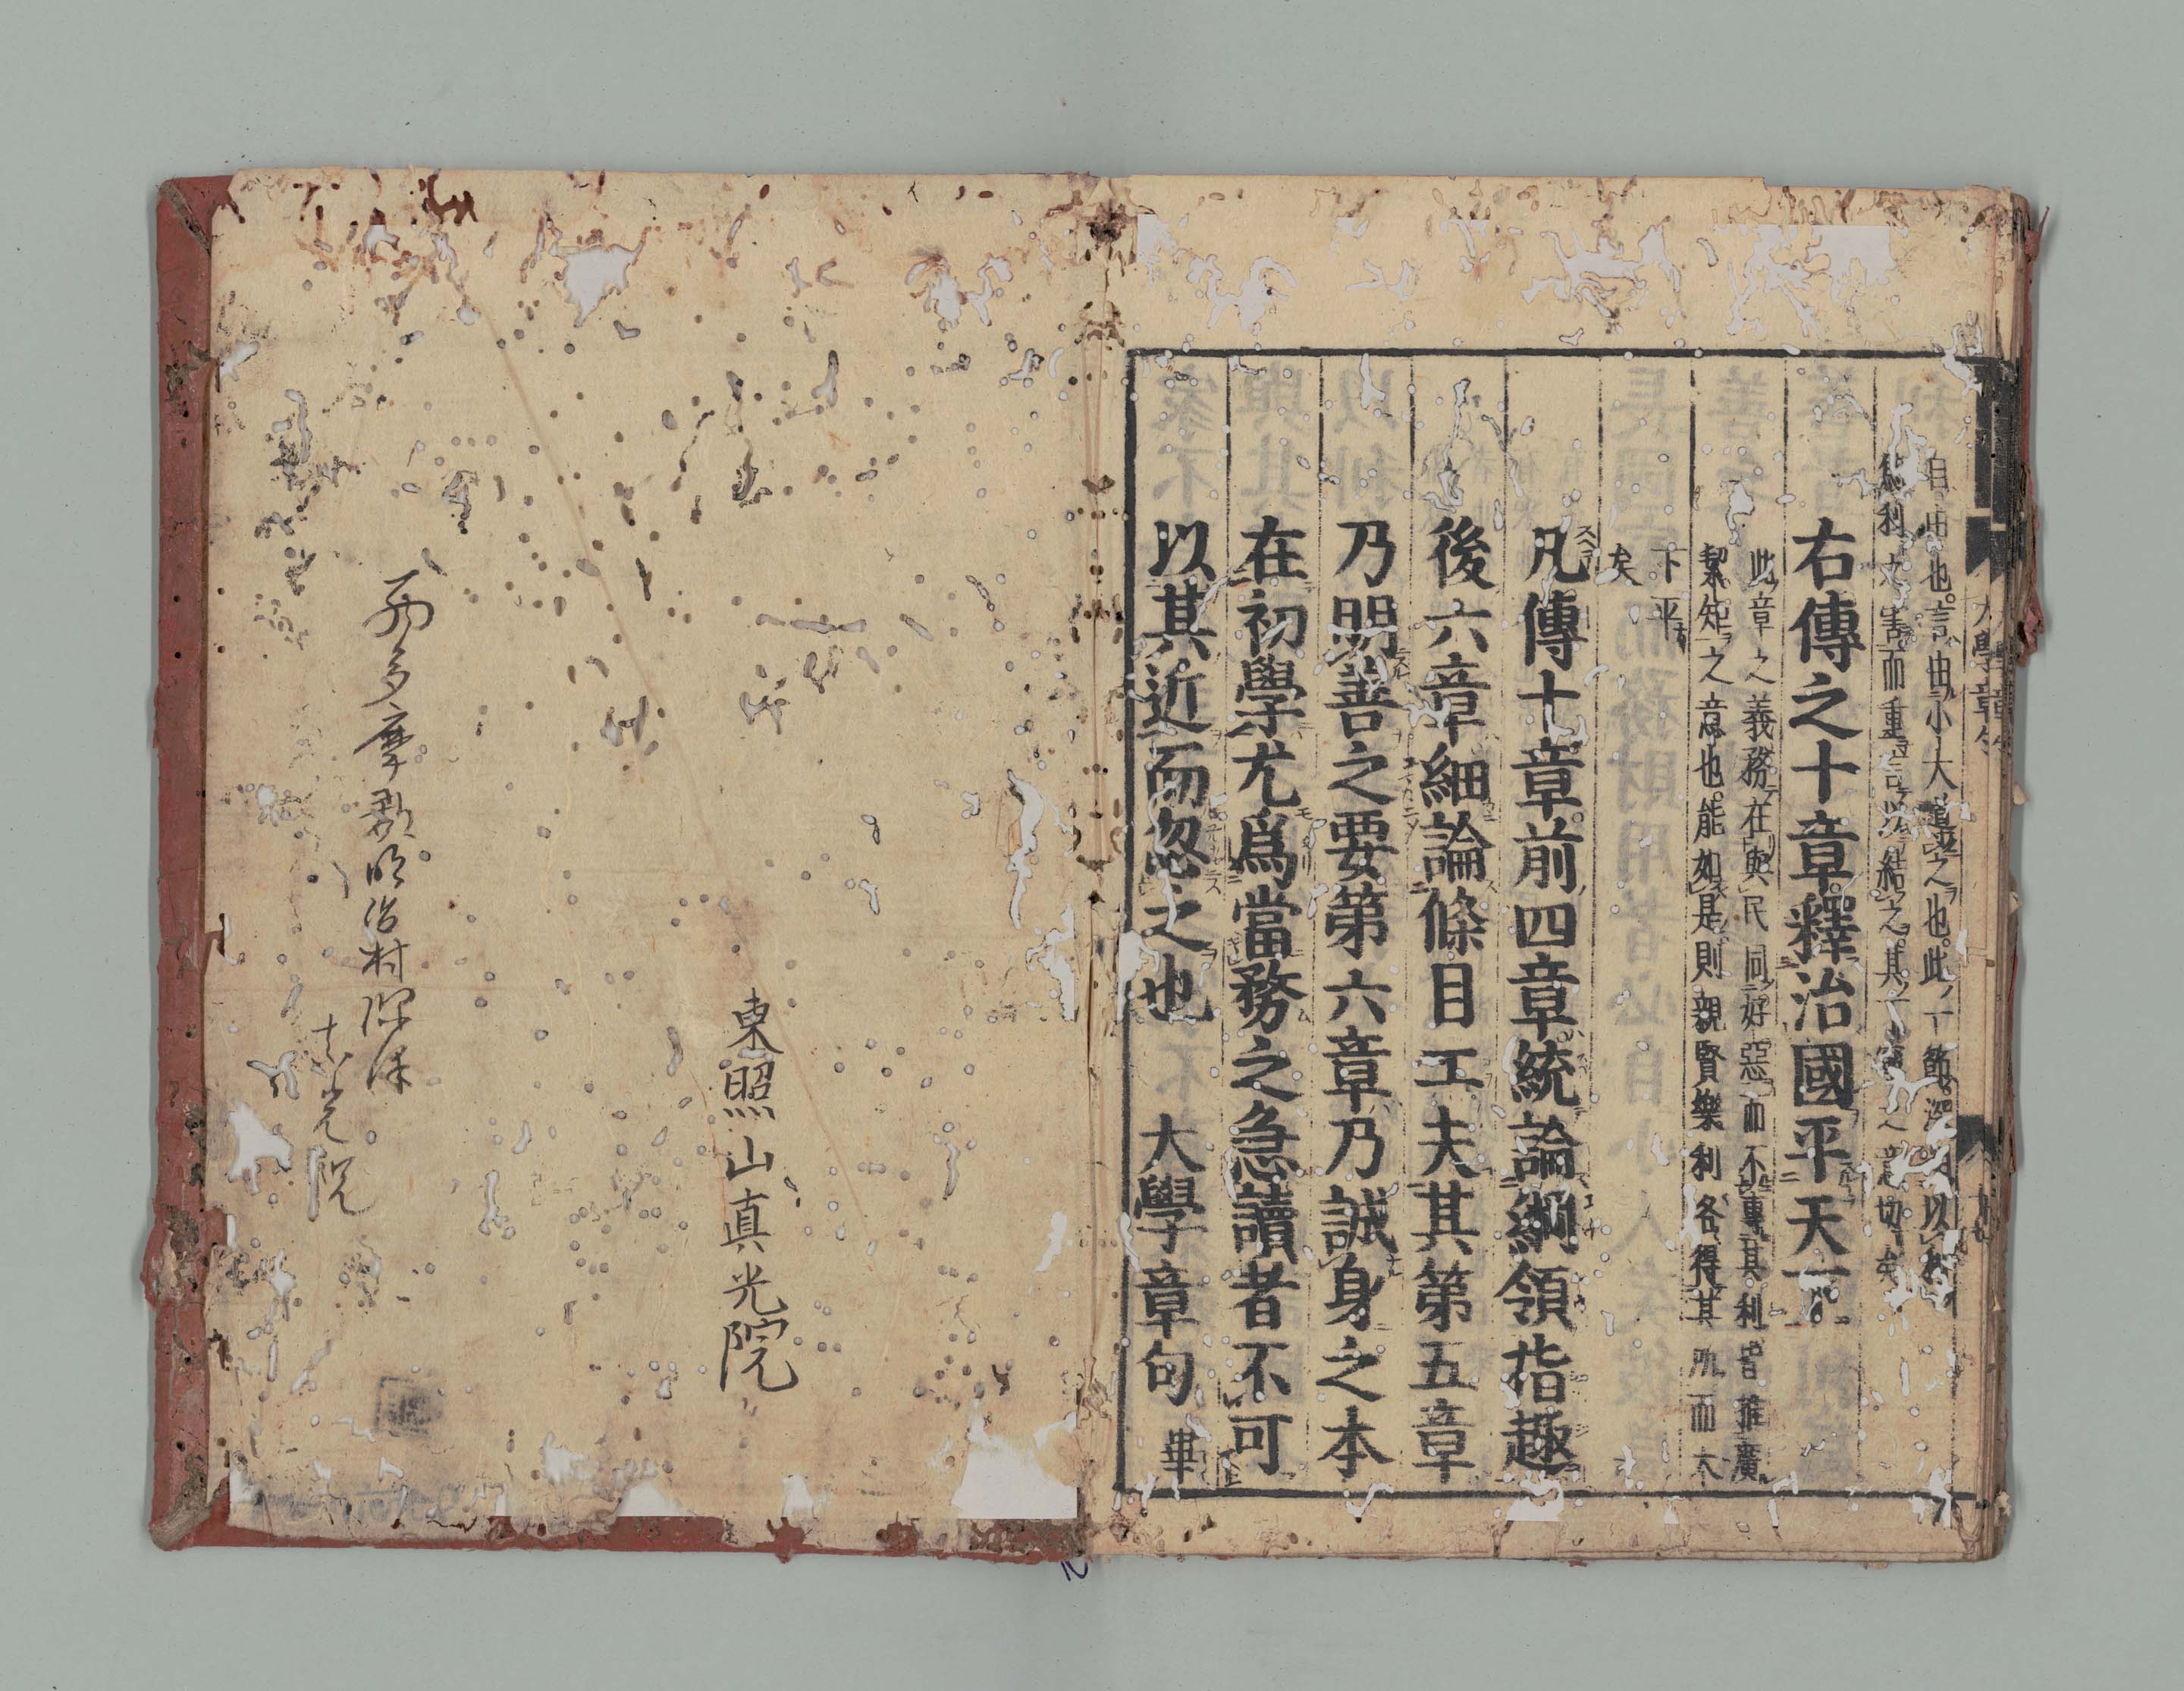 自由也言由小大道之也此一節深明以利
爲利之害而重言以結之其丁寧之意切矣
右傳之十章釋治國平天下
此章之義務在與民同好惡而不專其利皆推廣
絜矩之意也能如是則親賢樂利各得其所而天
下平
矣
凡傳十章前四章統論綱領指趣
後六章細論條目工夫其第五章
乃明善之要第六章乃誠身之本
在初學尤爲當務之急讀者不可
以其近而忽之也 大學章句 畢
大學章句
東照山真光院
西多摩郡明治村
真光院